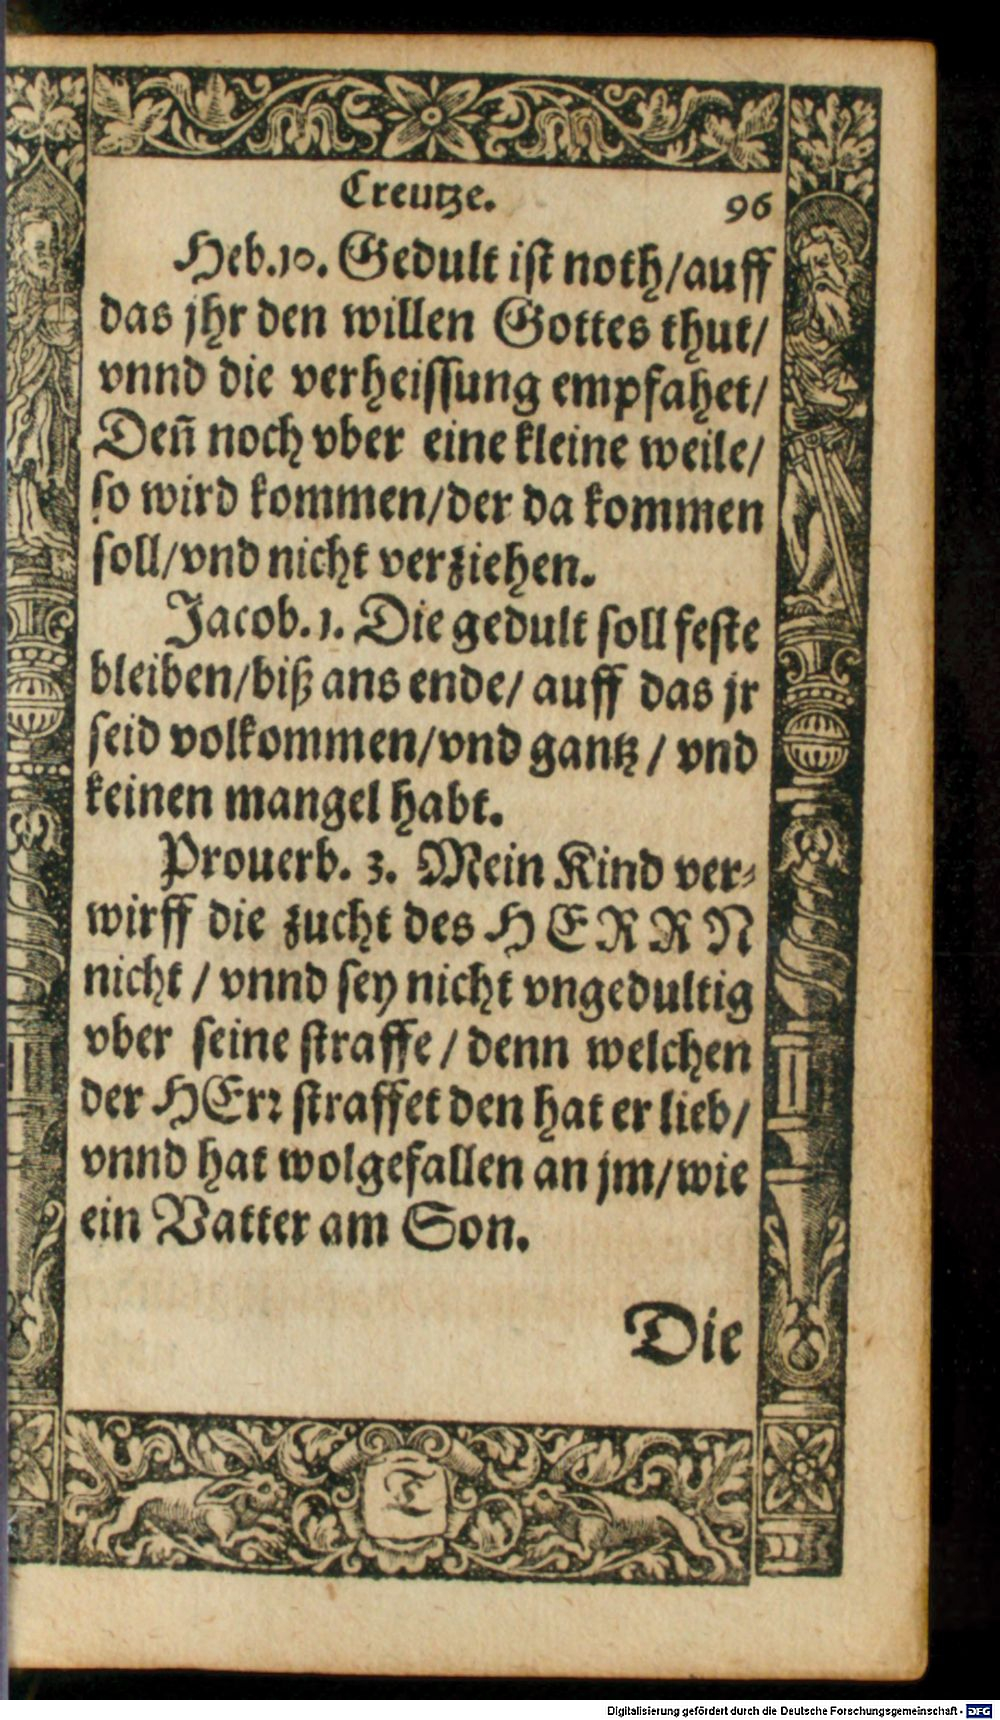 Creutze. 96
Heb. 10. Gedult ist noth/auff
das jhr den willen Gottes thut/
vnnd die verheissung empfahet/
Deñ noch vber eine kleine weile/
so wird kommen/der da kommen
soll/vnd nicht verziehen.
Jacob. 1. Die gedult soll feste
bleiben/biß ans ende/ auff das jr
seid volkommen/vnd gantz / vnd
keinen mangel habt.
Prouerb. 3. Mein Kind ver-
wirff die zucht des HERRN
nicht / vnnd sey nicht vngedultig
vber seine straffe / denn welchen
der HErr straffet den hat er lieb/
vnnd hat wolgefallen an jm/wie
ein Vatter am Son.
Die
Digitalisierung gefördert durch die Deutsche Forschungsgemeinschaft - DFG